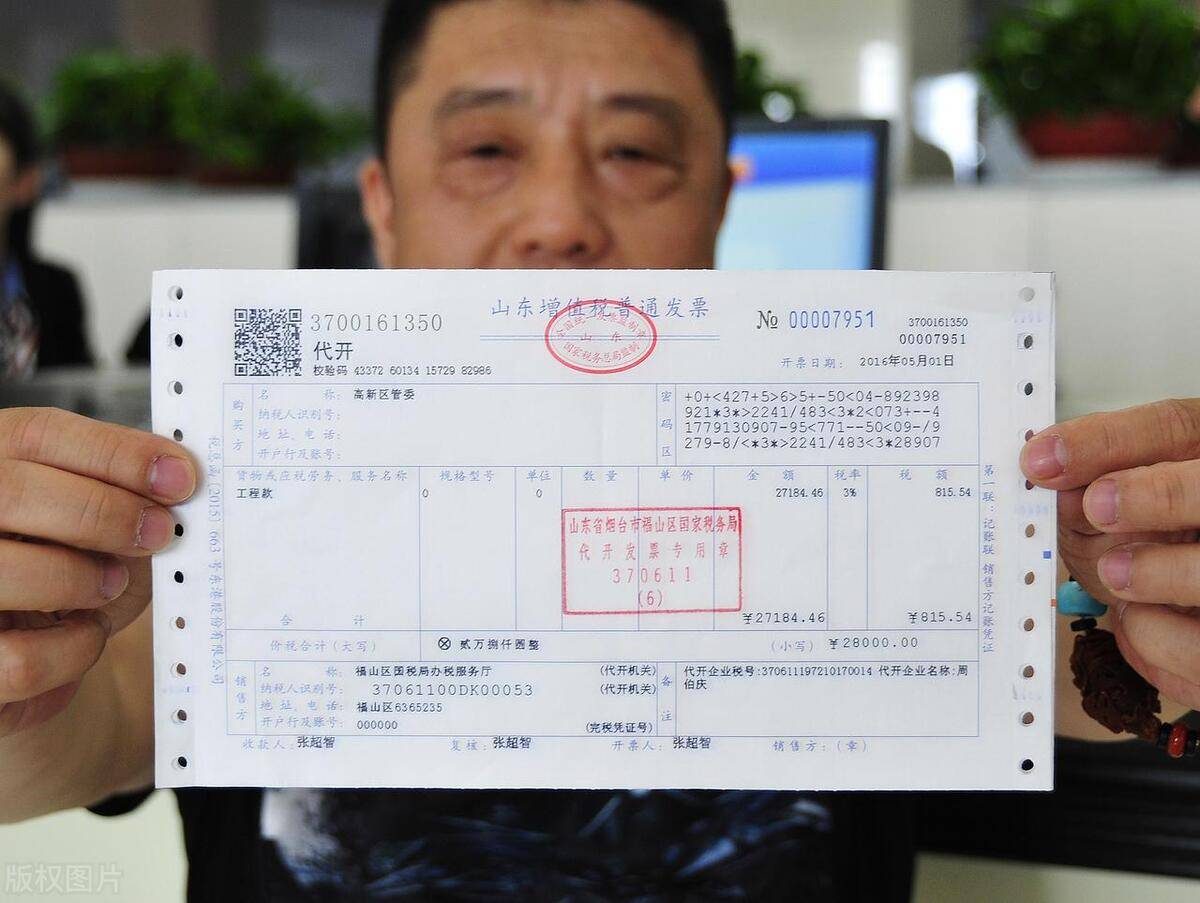 山东增值税普通发票
3700161350
№ 00007951
3700161350
00007951
代开
校验码 43372 60134 15729 82986
开票日期: 2016年05月01日
购买方
名 称: 高新区管委
纳税人识别号:
地 址、电 话:
开户行及账号:
密码区
+0+<427+5>6>5+-50<04-892398
921*3*>2241/483<3*2<073+--4
1779130907-95<771--50<09-/9
279-8/<*3*>2241/483<3*28907
货物或应税劳务、服务名称 规格型号 单位 数 量 单 价 金 额 税率 税 额
工程款 0 0 27184.46 3% 815.54
山东省烟台市福山区国家税务局
代开发票专用章
370611
(6)
合 计 ¥27184.46 ¥815.54
价税合计(大写) ⊗ 贰万捌仟圆整 (小写) ¥28000.00
销售方
名 称: 福山区国税局办税服务厅 (代开机关)
纳税人识别号: 37061100DK00053 (代开机关)
地 址、电 话: 福山区6365235
开户行及账号: 000000 (完税凭证号)
备注
代开企业税号:370611197210170014 代开企业名称:周
伯庆
收款人: 张超智 复核: 张超智 开票人: 张超智 销售方:(章)
第一联:记账联 销售方记账凭证
税总函〔2015〕663号东港股份有限公司
山 东
国家税务总局监制
版权图片